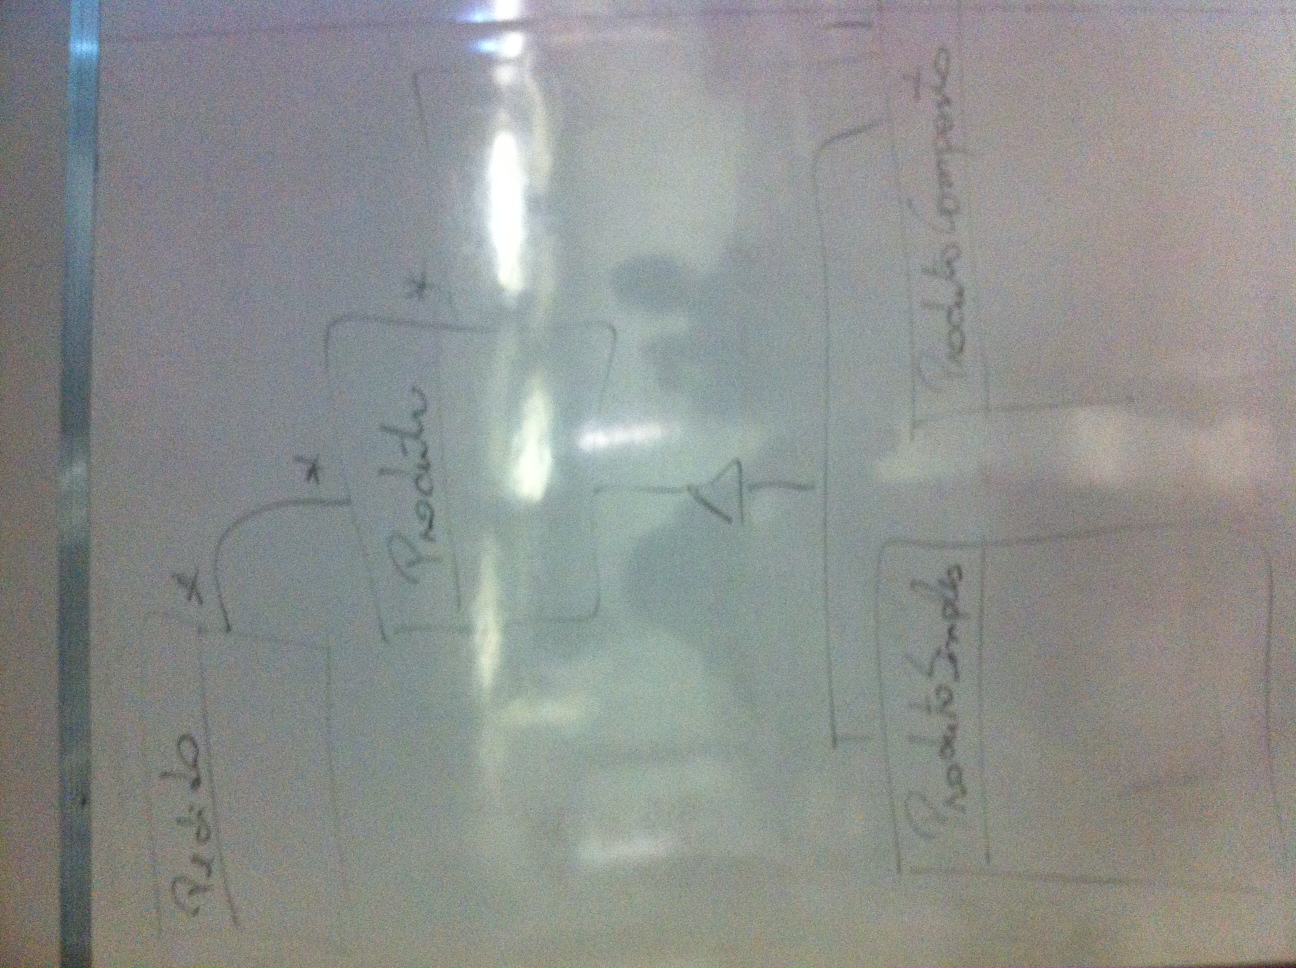 Pedido *
*
Produto *
1
ProdutoSimples ProdutoComposto